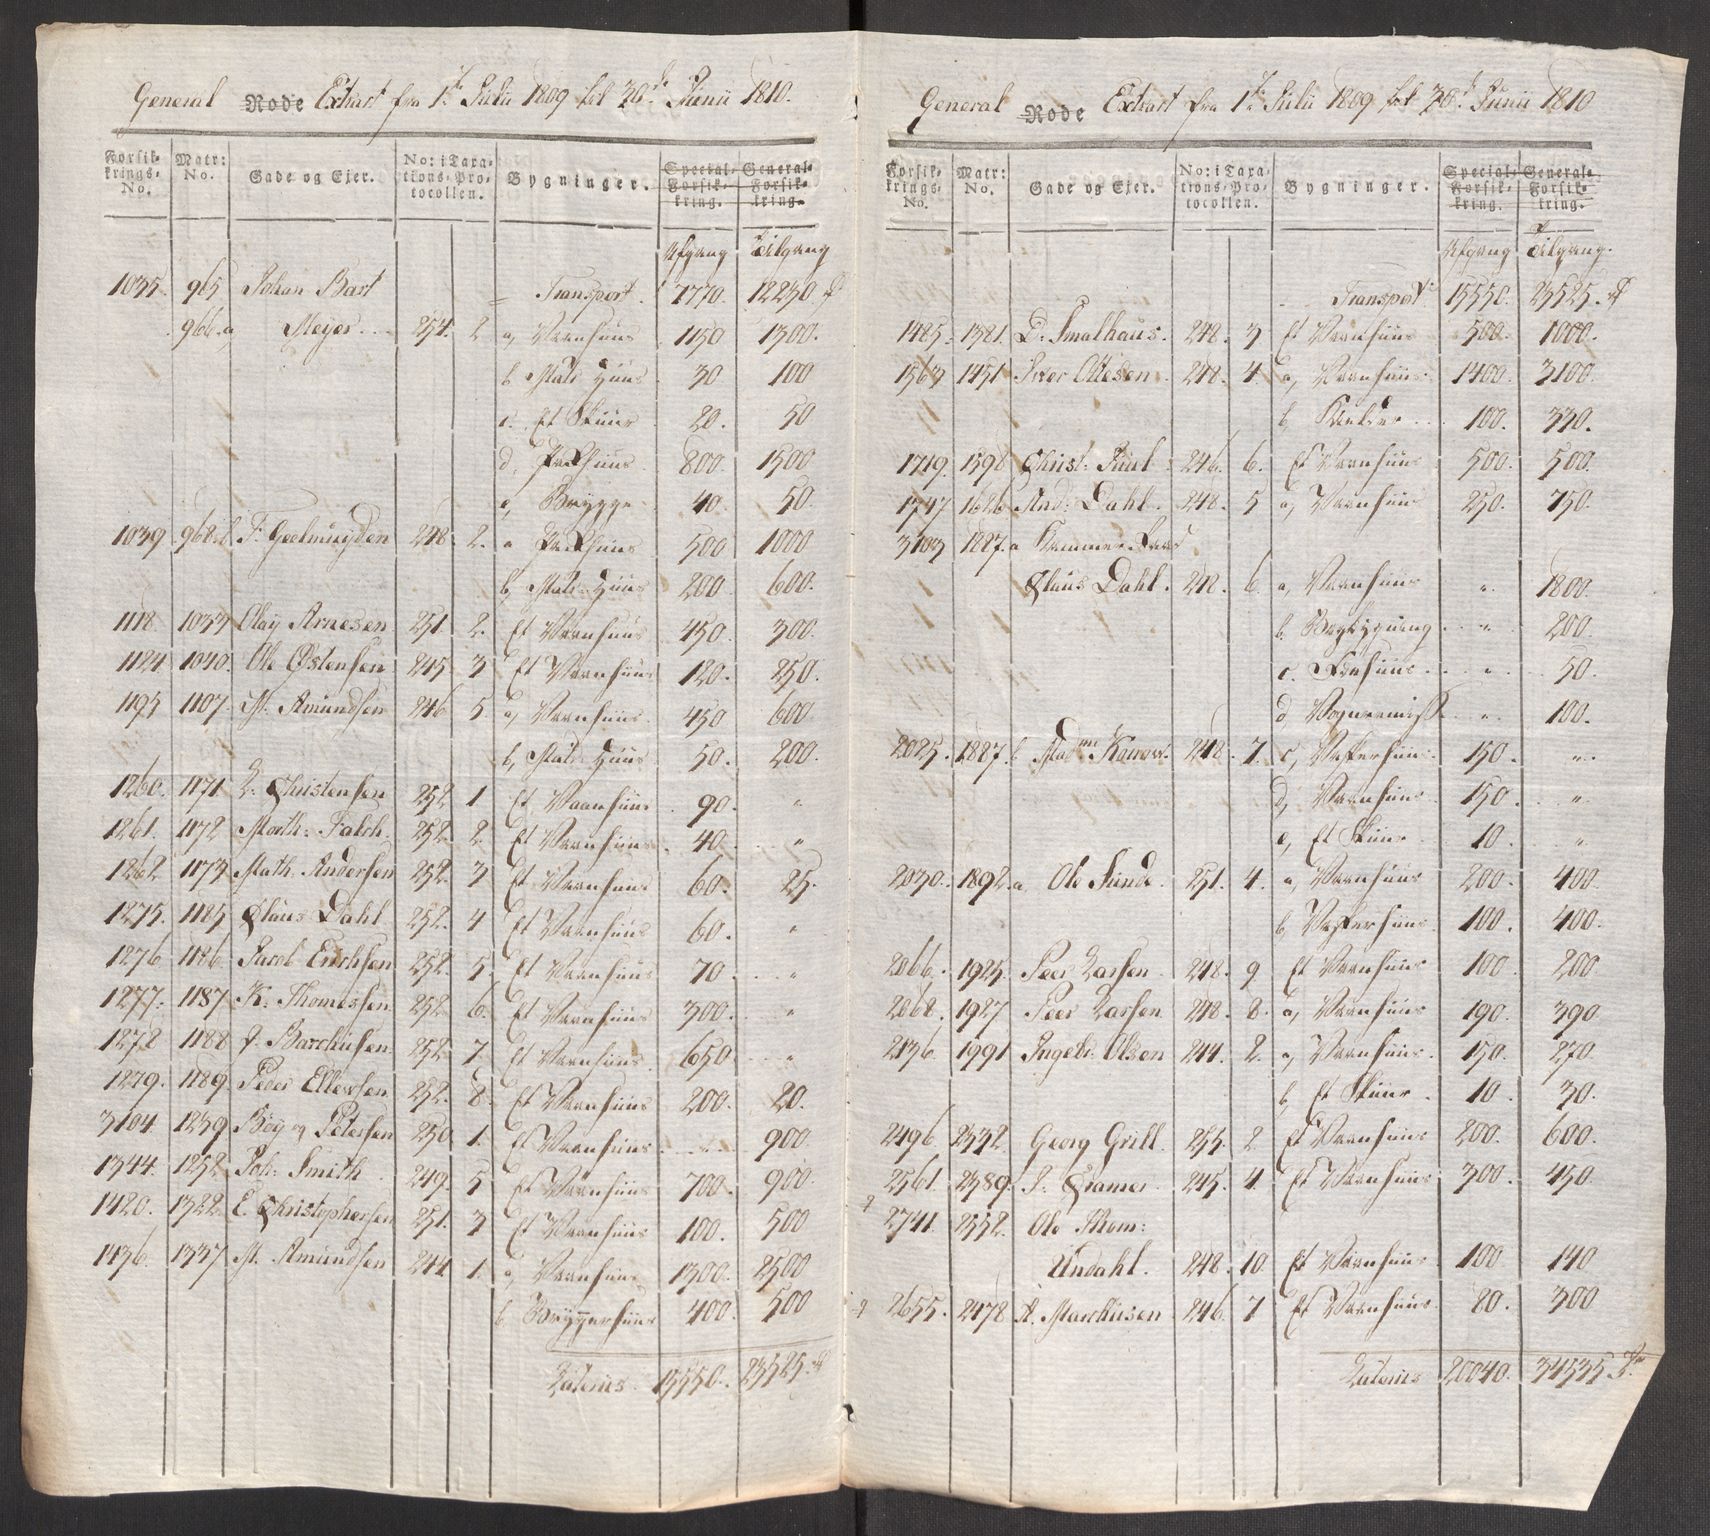 General Rode Extract fra 1te Julii 1809 til 30te Junii 1810.
Forsik-krings-No. Matr: No. Gade og Eier. No: i Taxa-tions-Pro-tocollen. Bygninger. Special-Forsik-kring. General-Forsik-kring.
Afgang Tilgang
1035. 965 Johan Bart Transport. 7770. 12230.
966.a Meyer 254. 2 a, Vaanhuus 1150 1300.
b Mate Huus 30 100
c. Et Skuur 20. 50
d, Pakhuus 800. 1500
e, Brygge 40. 50.
1039 968.b F: Geelmuyden 248. 2. a Pakhuus 500 1000
b, Mate Huus 200 600.
1118. 1033 Oluy Arnesen 251 2. Et Vaanhuus 450. 300.
1124 1040. Ole Østensen 245 3 Et Vaanhuus 120. 250.
1195 1107. M. Amundsen 246 5. a, Vaanhuus 450 600.
b, Mate Huus 50. 200.
1260. 1171 L. Christensen 252 1 Et Vaanhuus 90. "
1261. 1172 Morth: Falch. 252. 2. Et Vaanhuus 40. "
1262 1173 Math. Andersen 252. 3 Et Vaanhuus 60. 25.
1275. 1185 Claus Dahl 252. 4 Et Vaanhuus 60. "
1276 1186 Jacob Erichsen 252. 5. Et Vaanhuus 70. "
1277. 1187 K. Thomessen 252 6. Et Vaanhuus 300. "
1278 1188 Barchusen 252. 7. Et Vaanhuus 650 "
1279. 1189. Peder Ellewsen 252. 8. Et Vaanhuus 200. 20.
3104. 1239 Bøy og Petersen 250. 1. Et Vaanhuus " 900.
1344. 1252 Joh: Smith 249. 5 Et Vaanhuus 700. 900.
1420. 1322 E. Christophersen 251. 3 Et Vaanhuus 100. 500
1436 1337 M. Amundsen 244. 1. a, Vaanhuus 1300. 2500
b Bryggerhuus 400. 500
Lateris 15550. 23525.
General Rode Extract fra 1te Julii 1809 til 30te Junii 1810
Forsik-krings-No. Matr: No. Gade og Eier. No: i Taxa-tions-Pro-tocollen. Bygninger. Special-Forsik-kring. General-Forsik-kring.
Afgang Tilgang.
Transport 15550. 23525.
1485. 1381. D. Smalhaus. 248. 3 Et Vaanhuus 500. 1000.
1563 1451 Iver Ottesen 248. 4. a, Vaanhuus 1400. 3100.
b, Kielder 100. 330.
1719. 1598 Christ: Juul 246. 6. Et Vaanhuus 500. 500.
1747 1626 And: Dahl. 248. 5 a, Vaanhuus 250. 750.
3103 1887.a Kammer Raad
Claus Dahl. 248. 6 a, Vaanhuus " 1800.
b. Bagbygning " 200.
c. " 50.
d Vognremisse " 100.
2025. 1887. b Madme Konow. 248. 7. c, Vasherhuus 150. "
d, Vaanhuus 150. "
e, Et Skuur 10. "
2030. 1892.a Ole Sunde 251. 4. a, Vaanhuus 200. 400.
b, Vasherhuus 100. 400.
2066. 1925. Peer Larsen 248. 9 Et Vaanhuus 100. 200.
2068. 1927 Peer Larsen 248. 8. a, Vaanhuus 190. 390.
2136. 1991 Ingebr: Olsen 244. 2. a, Vaanhuus 150. 270.
b, Et Skuur 10 30.
2496 2332 Georg Grill 255. 2 Et Vaanhuus 200. 600.
2561 2389. J: Cramer 245. 4. Et Vaanhuus 300. 450.
2741. 2552. Ole Thom:
Undahl. 248. 10. Et Vaanhuus 100. 140
2655. 2478 A. Marchusen 246. 7 Et Vaanhuus 80. 300
Lateris 20040. 34535